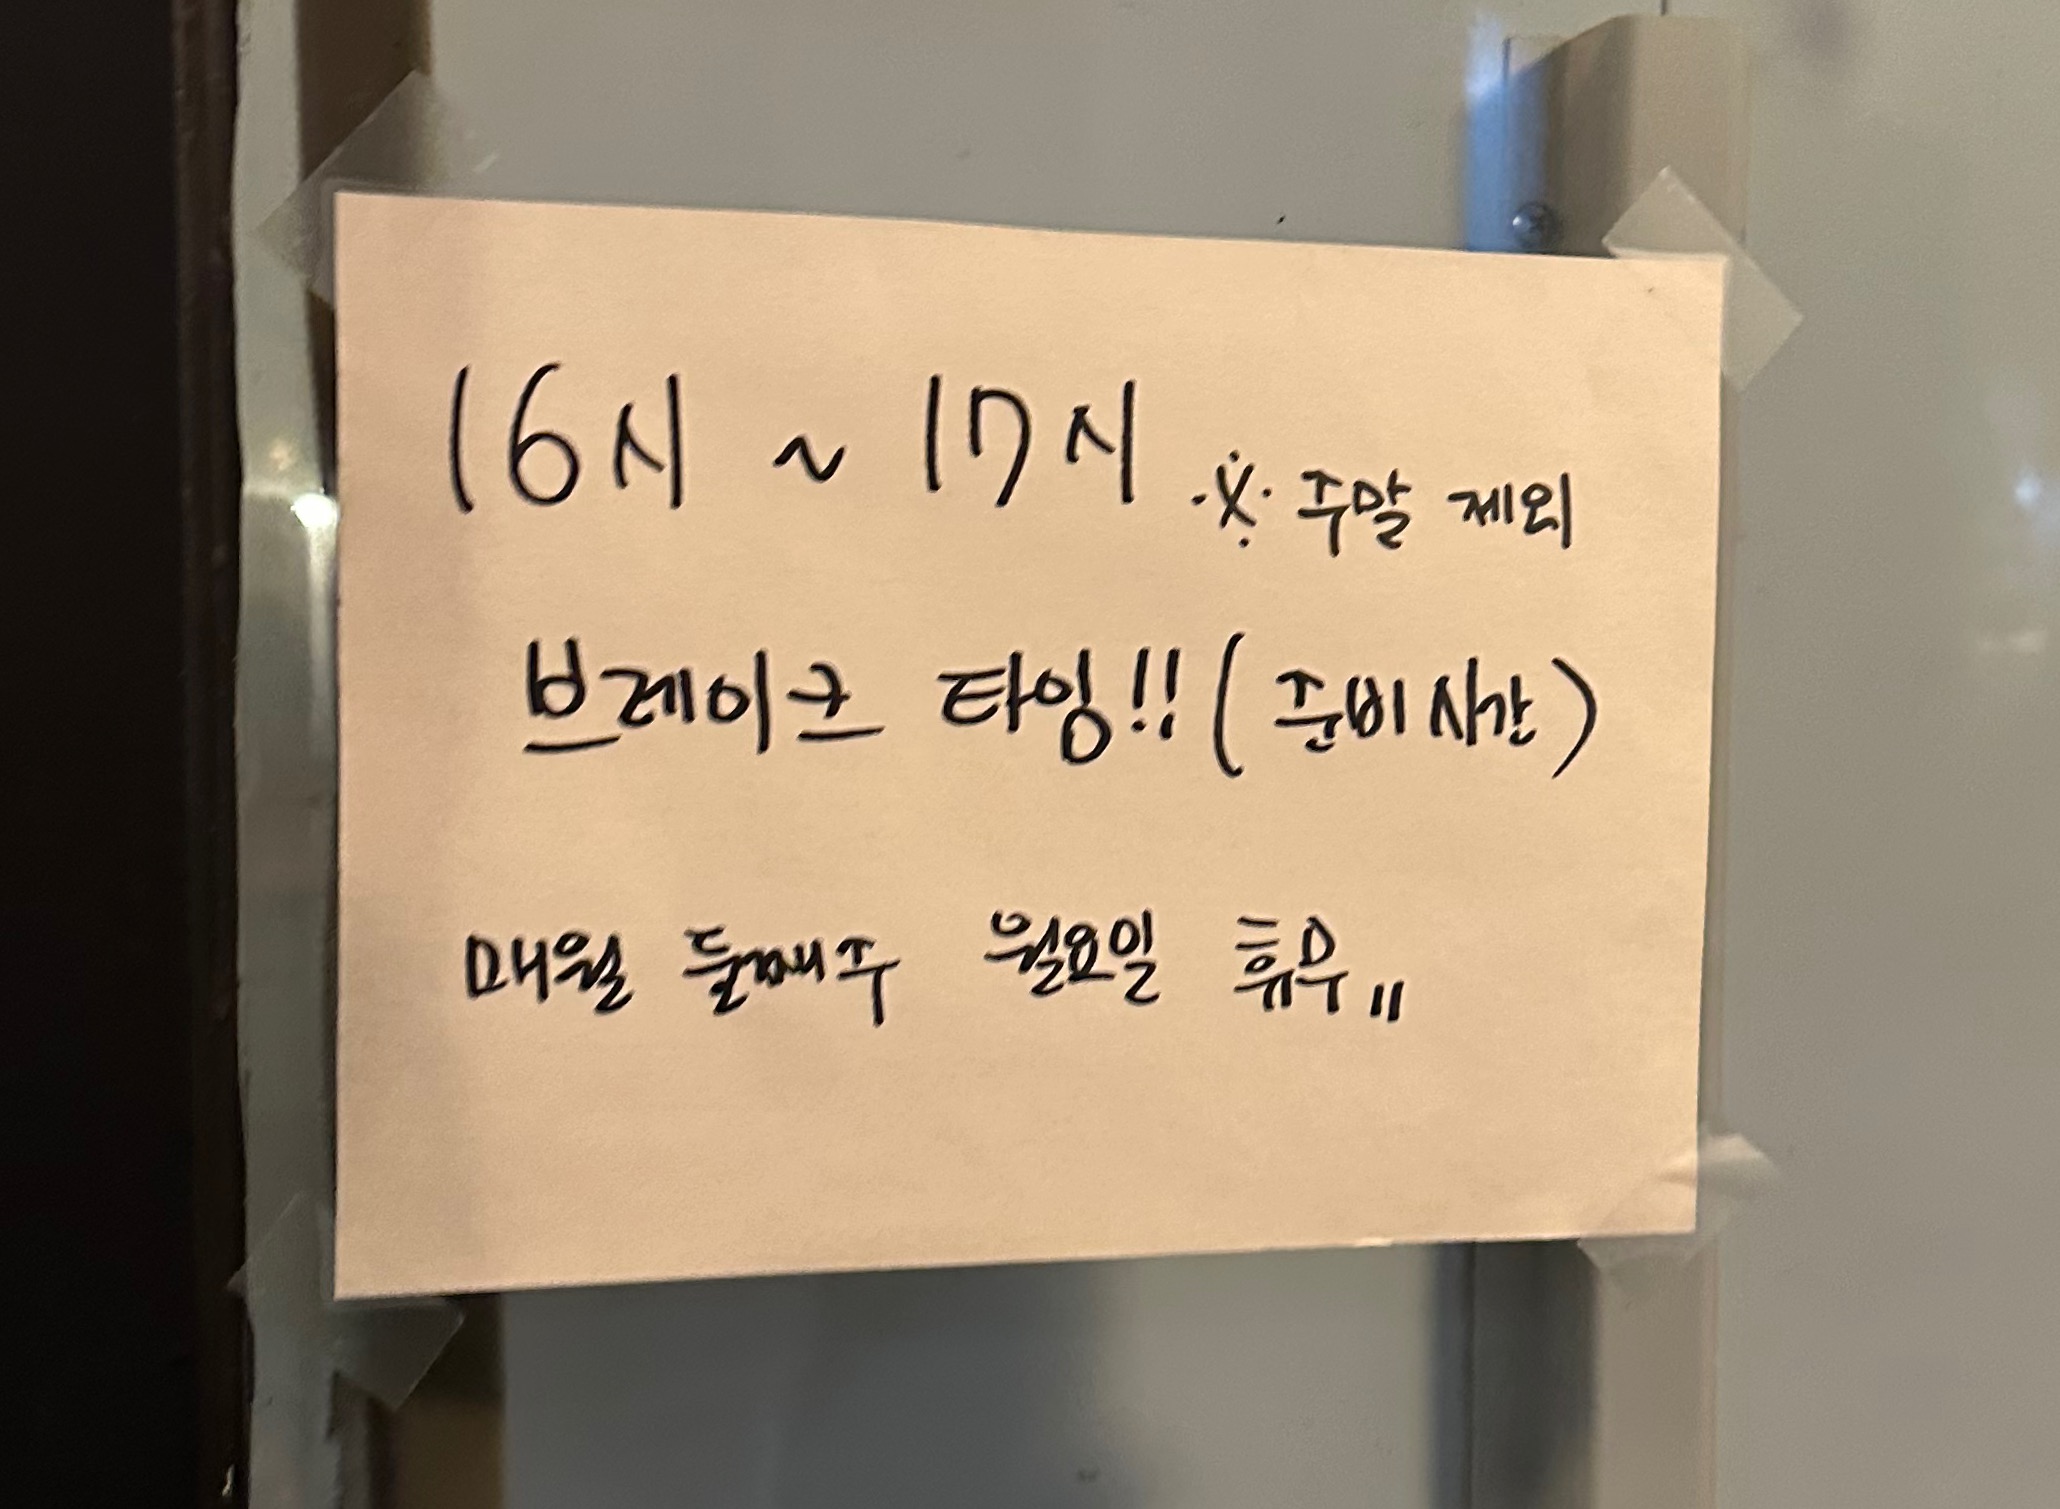 16시 ~ 17시 ※ 주말 제외
브레이크 타임!! (준비시간)
매월 둘째주 월요일 휴무